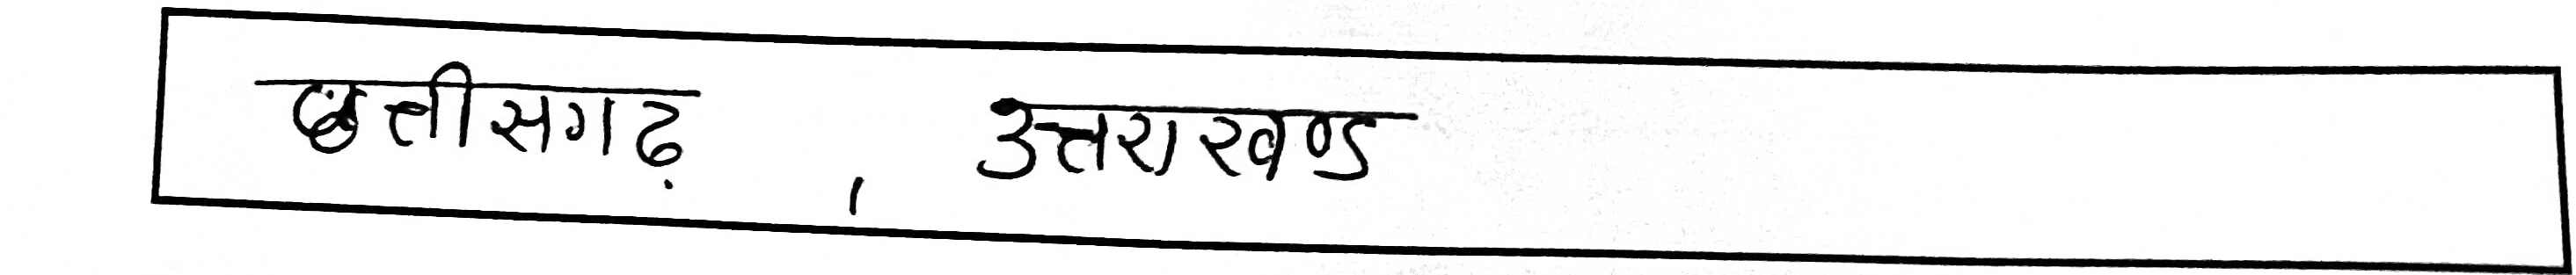 छत्तीसगढ़ , उत्तराखण्ड